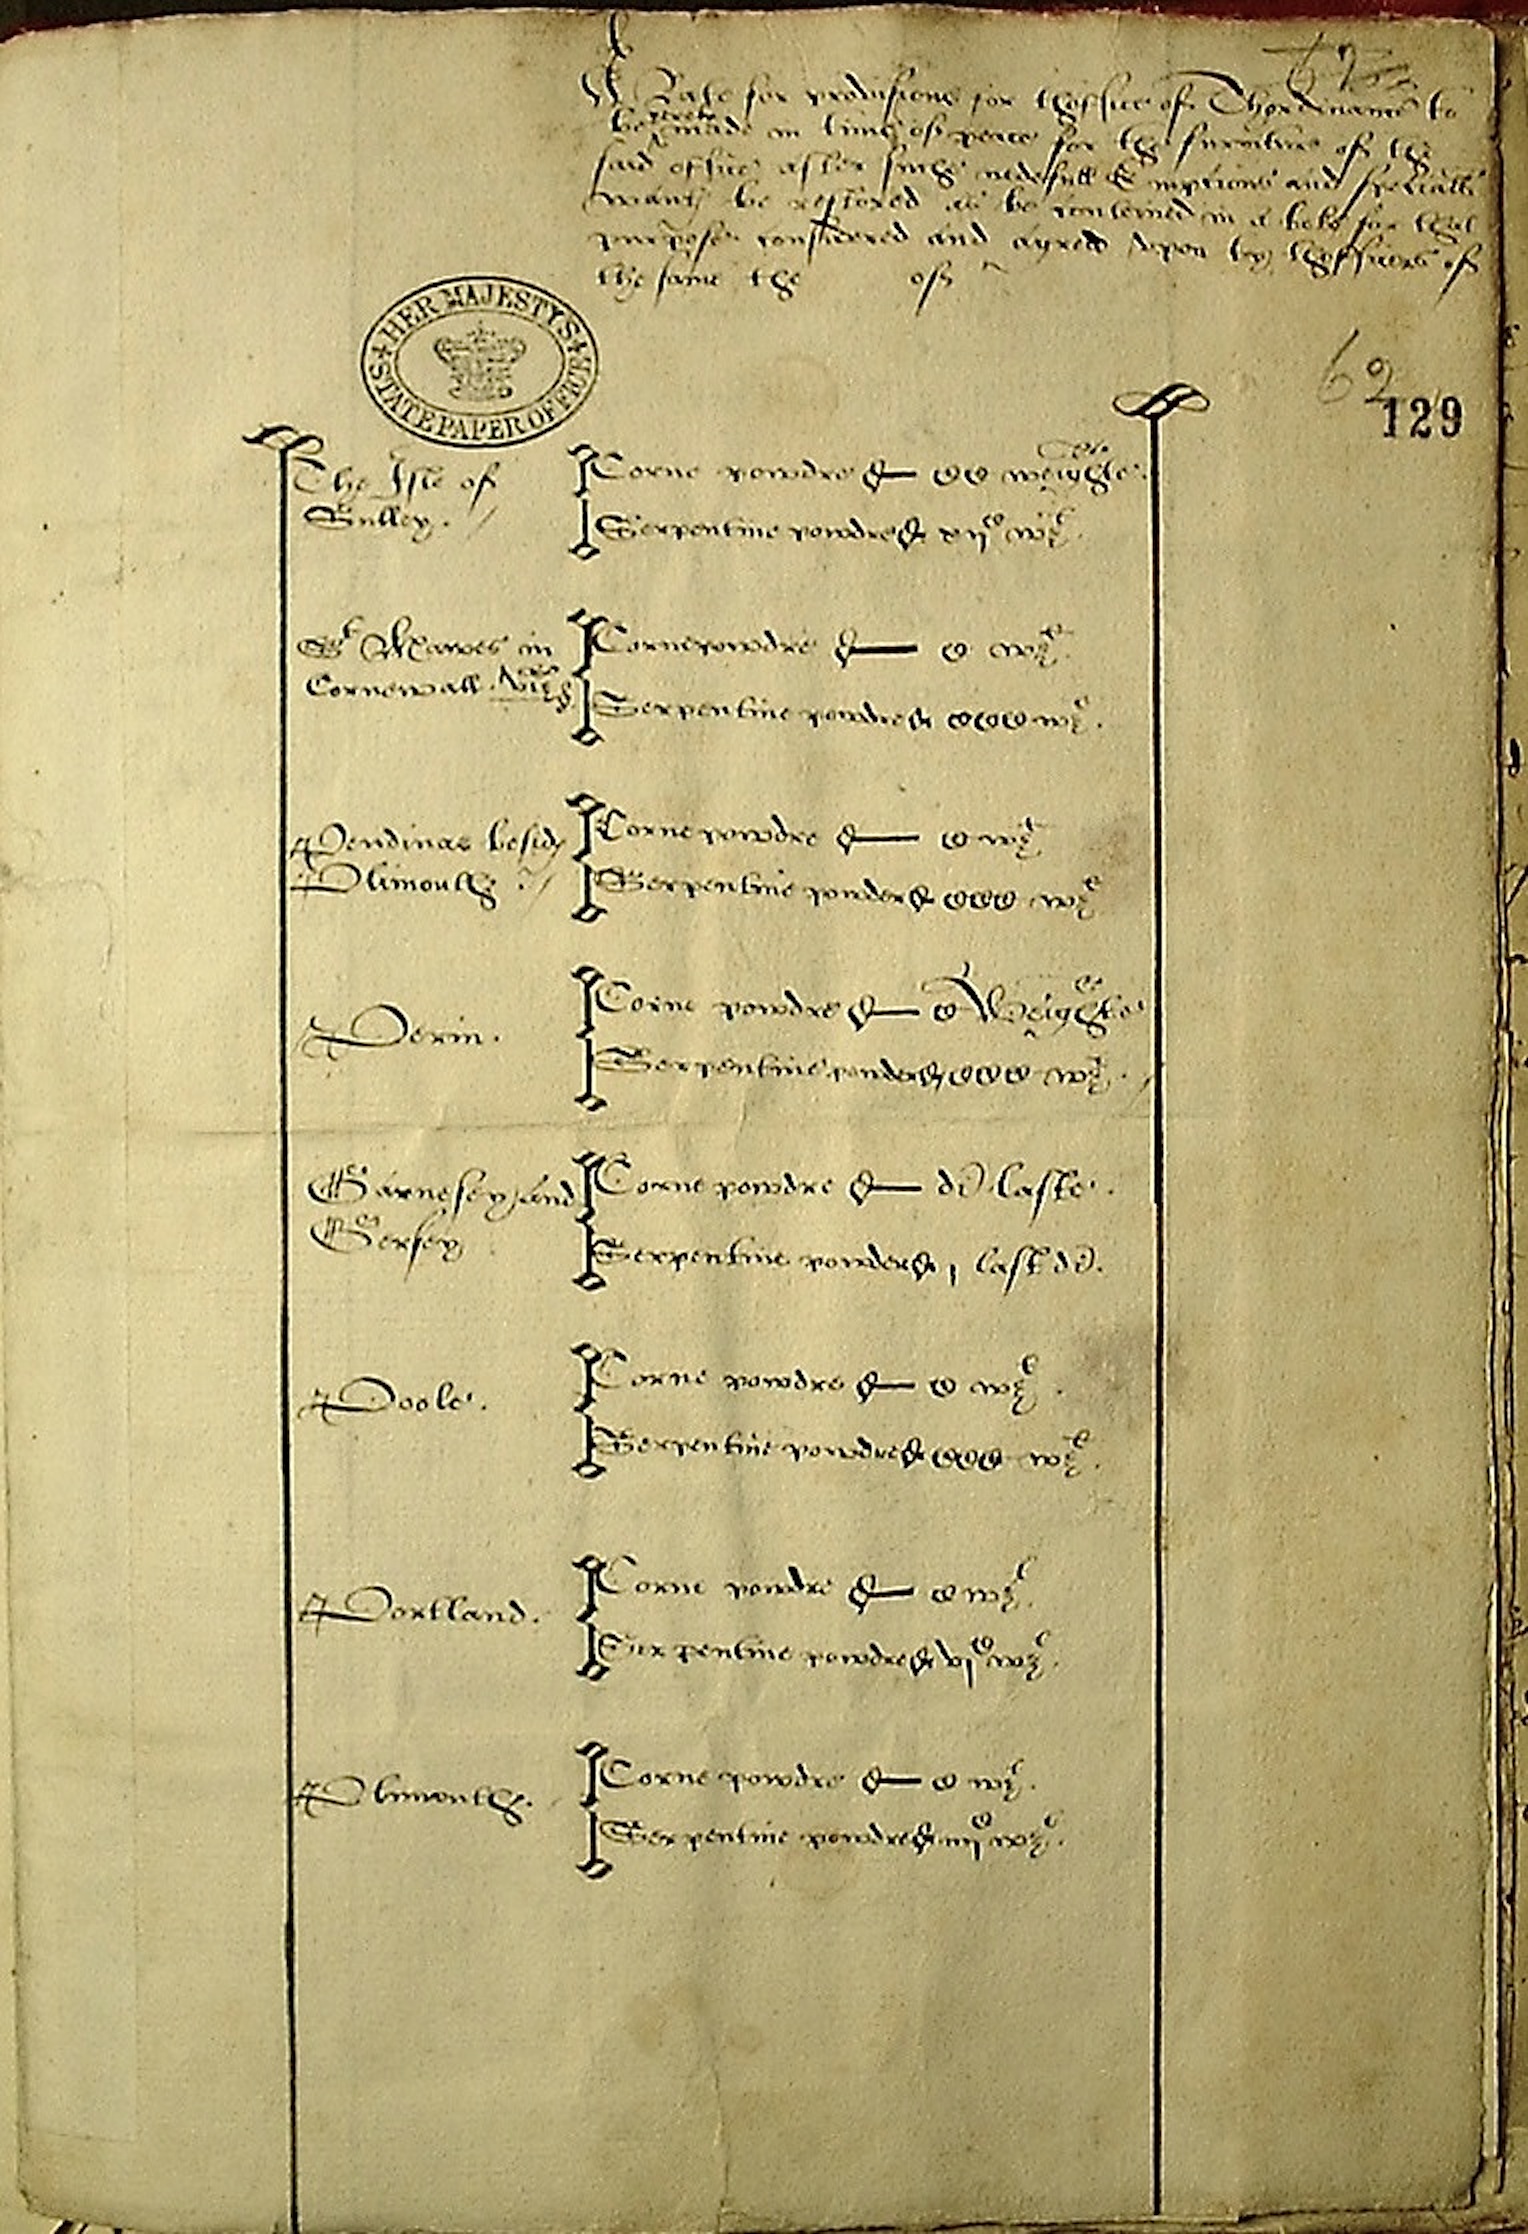 62
A Rate for provisions for thoffice of Thordinance to
be yerely made in time of peace for the furniture of the
said office after suche nedefull Emptions and specialls
wants be restored as be conteined in a boke for that
purpose considered and agreed upon by thofficers of
the same the of
HER MAJESTYS
STATE PAPER OFFICE
62
129
The Isle of
Sulley.
Corne powdre CC weighte.
Serpentine powdre vijC wt.
St Mawes in
Cornewall. viz
Corne powdre C wt.
Serpentine powdre CCC wt.
Pendinas besids
Plimouth
Corne powdre C wt
Serpentine powder CCC wt
Perin.
Corne powdre C Weighte
Serpentine powder CCC wt.
Garnesey and
Gersey
Corne powdre di laste.
Serpentine powder j last di.
Poole.
Corne powdre C wt.
Serpentine powdre CCC wt.
Portland.
Corne powdre C wt.
Serpentine powdre vjC wt.
Plimouth.
Corne powdre C wt.
Serpentine powdre iijC wt.